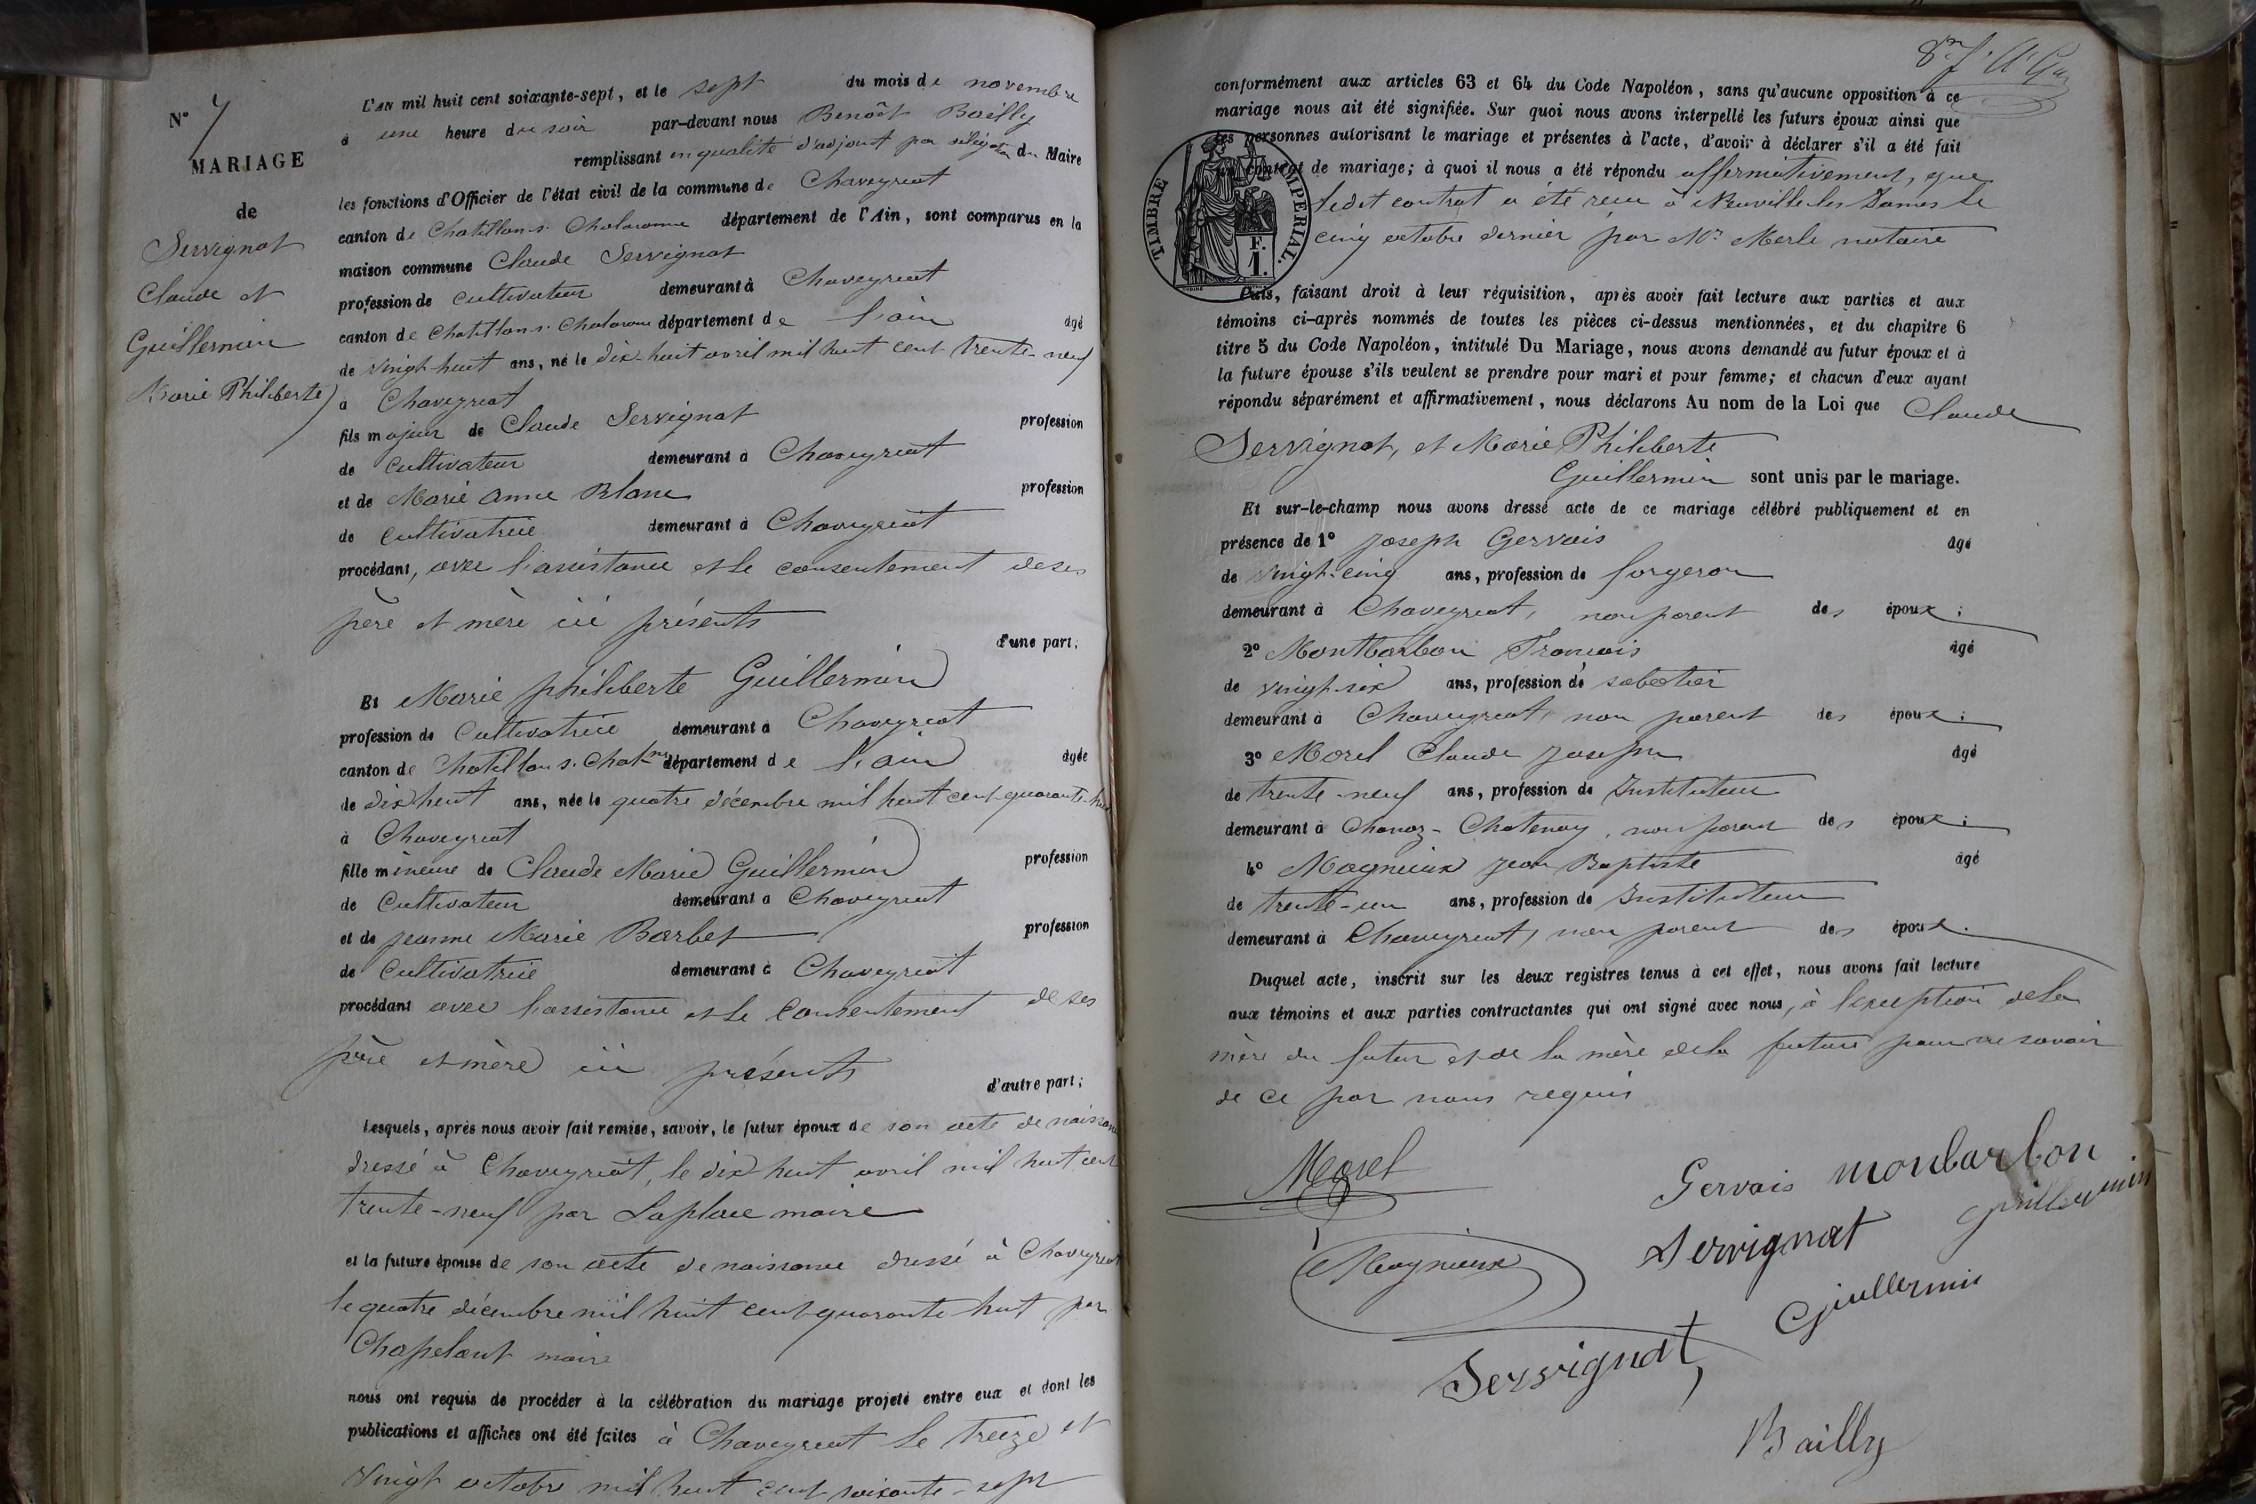 N° 7
MARIAGE
de
Servignat
Claude et
Guillermin
Marie Philiberte
L'an mil huit cent soixante-sept, et le sept du mois de novembre
à une heure du soir par-devant nous Benoît Bailly
remplissant en qualité d'adjoint par délégation du Maire
les fonctions d'Officier de l'état civil de la commune de Chaveyriat
canton de Chatillon s. Chalaronne département de l'Ain, sont comparus en la
maison commune Claude Servignat
profession de cultivateur demeurant à Chaveyriat
canton de Chatillon s. Chalaronne département de l'ain âgé
de vingt-huit ans, né le dix-huit avril mil huit cent trente-neuf
à Chaveyriat
fils majeur de Claude Servignat profession
de cultivateur demeurant à Chaveyriat
et de Marie Anne Blanc profession
de cultivatrice demeurant à Chaveyriat
procédant, avec l'assistance et le consentement de ses
père et mère ici présents
d'une part;
Et Marie philiberte Guillermin
profession de Cultivatrice demeurant à Chaveyriat
canton de Chatillon s. Chalne département de l'ain âgée
de dix huit ans, née le quatre décembre mil huit cent quarante-huit
à Chaveyriat
fille mineure de Claude Marie Guillermin profession
de Cultivateur demeurant à Chaveyriat
et de jeanne Marie Barbet profession
de cultivatrice demeurant à Chaveyriat
procédant avec l'assistance et le Consentement de ses
père et mère ici présents
d'autre part;
Lesquels, après nous avoir fait remise, savoir, le futur époux de son acte de naissance
dressé à Chaveyriat, le dix huit avril mil huit cent
trente-neuf par Laplace maire
et la future épouse de son acte de naissance dressé à Chaveyriat
le quatre décembre mil huit cent quarante huit par
Chapelant maire
nous ont requis de procéder à la célébration du mariage projeté entre eux et dont les
publications et affiches ont été faites à Chaveyriat le treize et
vingt octobre mil huit cent soixante-sept
conformément aux articles 63 et 64 du Code Napoléon, sans qu'aucune opposition à ce
mariage nous ait été signifiée. Sur quoi nous avons interpellé les futurs époux ainsi que
les personnes autorisant le mariage et présentes à l'acte, d'avoir à déclarer s'il a été fait
un contrat de mariage; à quoi il nous a été répondu affirmativement, que
ledit contrat a été reçu à Neuville les Dames le
cinq octobre dernier par Mr Merle notaire
TIMBRE IMPERIAL.
1 F.
Puis, faisant droit à leur réquisition, après avoir fait lecture aux parties et aux
témoins ci-après nommés de toutes les pièces ci-dessus mentionnées, et du chapitre 6
titre 5 du Code Napoléon, intitulé Du Mariage, nous avons demandé au futur époux et à
la future épouse s'ils veulent se prendre pour mari et pour femme; et chacun d'eux ayant
répondu séparément et affirmativement, nous déclarons Au nom de la Loi que Claude
Servignat, et Marie Philiberte
Guillermin sont unis par le mariage.
Et sur-le-champ nous avons dressé acte de ce mariage célébré publiquement et en
présence de 1° Joseph Gervais âgé
de vingt-cinq ans, profession de forgeron
demeurant à Chaveyriat, non parent des époux;
2° Montbarbon François âgé
de vingt-six ans, profession de sabotier
demeurant à Chaveyriat, non parent des époux;
3° Morel Claude Joseph âgé
de trente-neuf ans, profession de Instituteur
demeurant à Chanoz-Chatenay, non parent des époux;
4° Magnieux Jean Baptiste âgé
de trente-un ans, profession de Instituteur
demeurant à Chaveyriat, non parent des époux.
Duquel acte, inscrit sur les deux registres tenus à cet effet, nous avons fait lecture
aux témoins et aux parties contractantes qui ont signé avec nous, à l'exception de la
mère du futur et de la mère de la future pour ne savoir
de ce par nous requis
Morel
Gervais monbarbon
Servignat guillermin
Magnieux
Guillermin
Servignat
Bailly